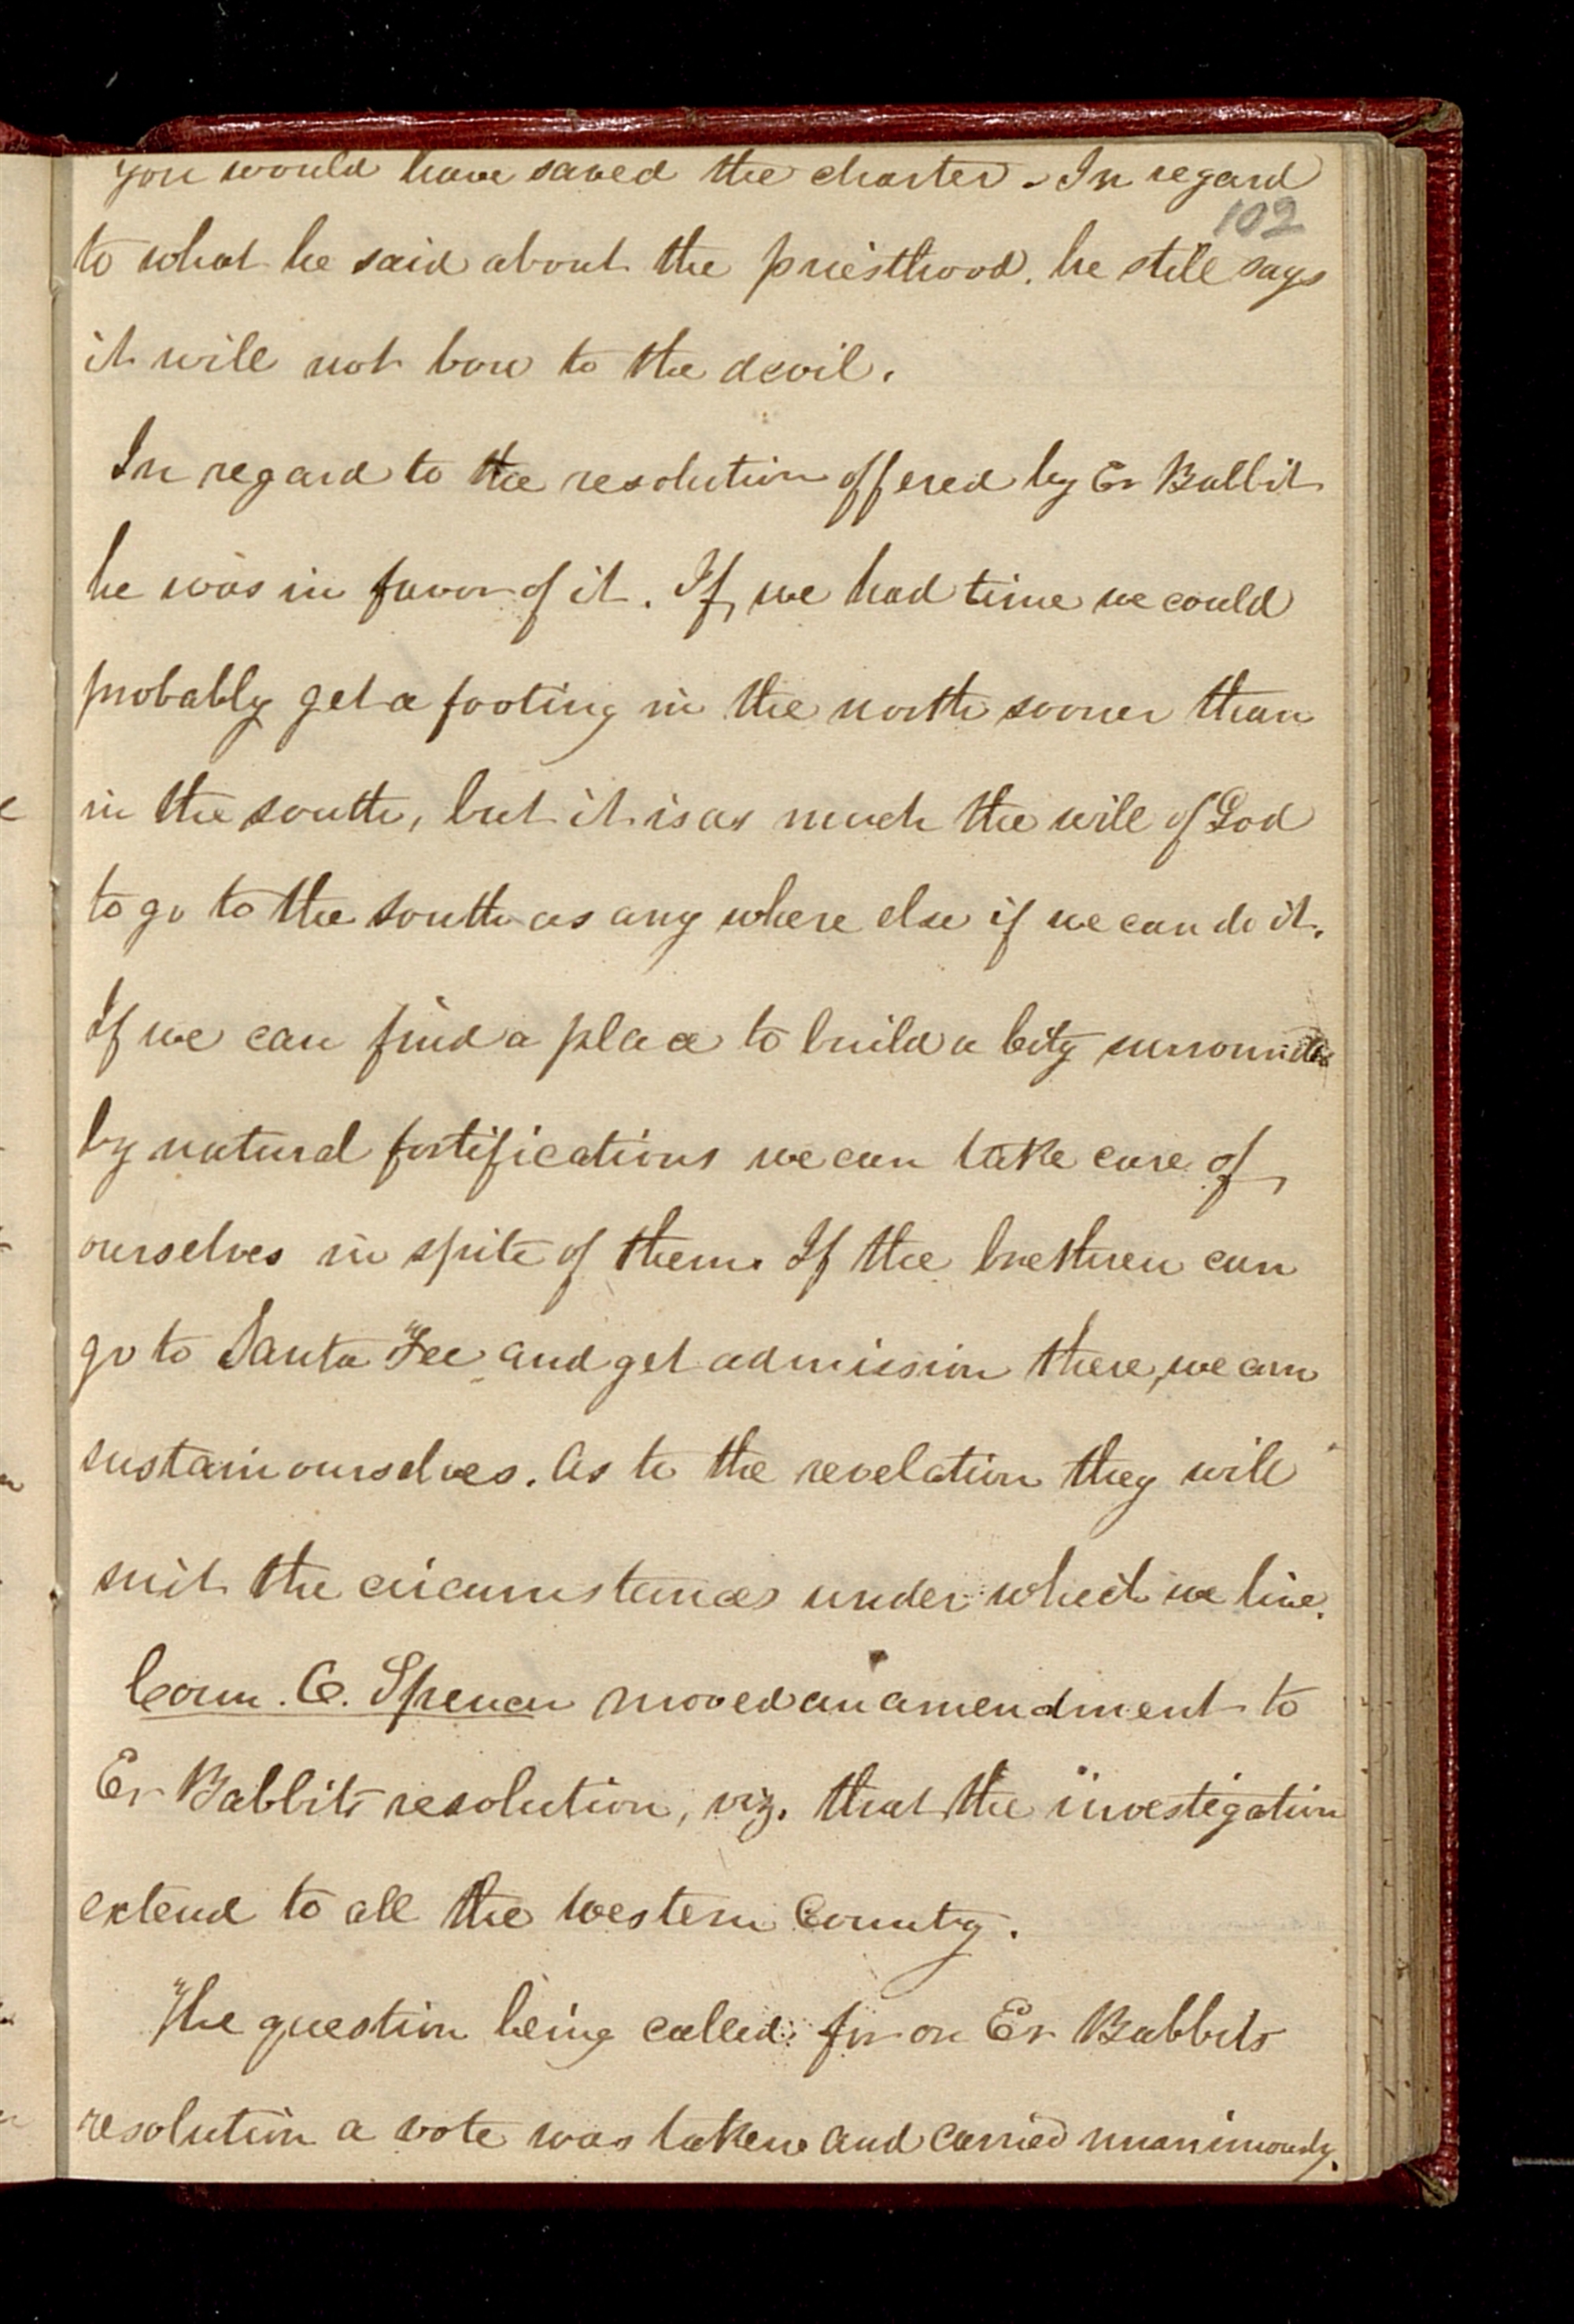 you would have saved the charter. In regard
102
to what he said about the priesthood, he still says
it will not bow to the devil.
In regard to the resolution offered by Er Babbit
he was in favor of it. If we had time we could
probably get a footing in the north sooner than
in the south, but it is as much the will of God
to go to the south as any where else if we can do it.
If we can find a place to build a City surrounded
by natural fortifications we can take care of
ourselves in spite of them. If the brethren can
go to Santa Fee and get admission there, we can
sustain ourselves. As to the revelation they will
suit the circumstances under which we live.
Coun. O. Spencer moved an amendment to
Er Babbits resolution, viz. that the investigation
extend to all the Western Country.
The question being called for on Er Babbits
resolution a vote was taken and carried unanimously.